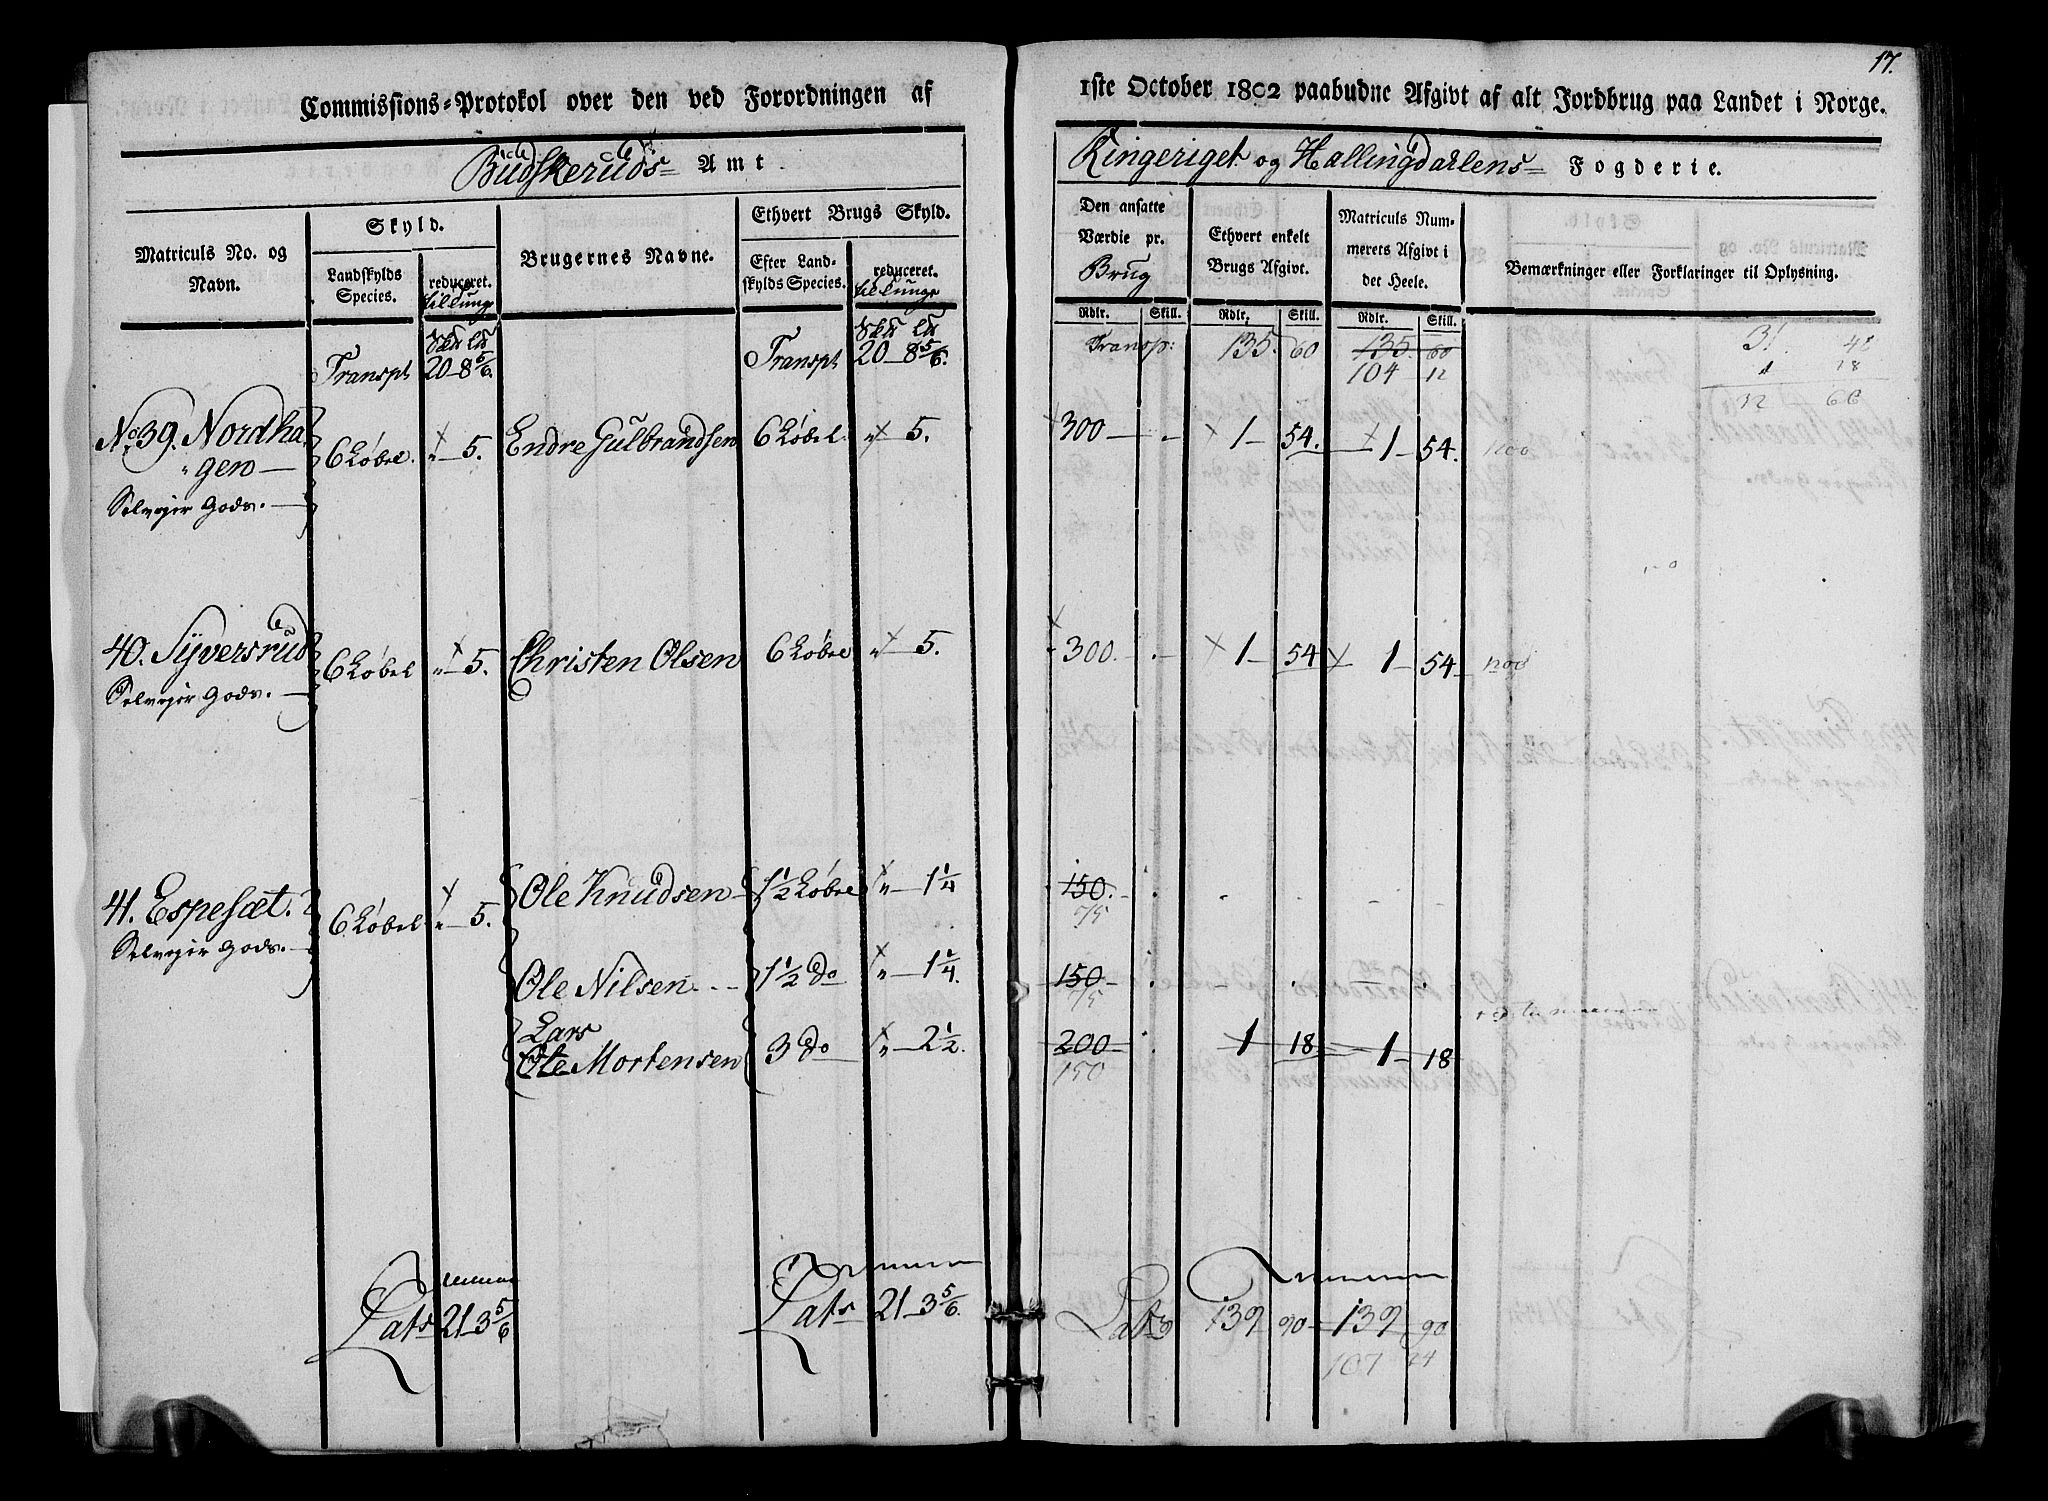 17.
Commissions-Protokol over den ved Forordningen af 1ste October 1802 paabudne Afgivt af alt Jordbrug paa Landet i Norge.
Budskeruds Amt. Ringeriget og Hallingdalens Fogderie.
Matriculs No. og Navn. | Skyld. | Brugernes Navne. | Ethvert Brugs Skyld. | Den ansatte Værdie pr. Brug | Ethvert enkelt Brugs Afgivt. | Matriculs Nummerets Afgivt i det Heele. | Bemærkninger eller Forklaringer til Oplysning.
Landskylds Species. | reduceret. til tunge | Efter Landskylds Species. | reduceret. til tunge
Rdlr. | Skill. | Rdlr. | Skill. | Rdlr. | Skill.
Transpt 20 8 5/6. | Transpt 20 8 5/6. | Transp: 135. 60 | 135. 60
104 12
31 48
1 18
66
No 39. Nordha- | 6 Løbel. | " 5. | Endre Gulbrandsen | 6 Løbel. | " 5. | 300 - | 1 54. | 1 54. | 1200
gen
Selvejer Gods.
40. Syversrud | 6 Løbel | " 5. | Christen Olsen | 6 Løbel | " 5. | 300. - | 1 54 | 1 54 | 1200
Selvejer Gods.
41. Espesæt. | 6 Løbel | " 5. | Ole Knudsen | 1 1/2 Løbel | " 1 1/4 | 150.
75
Selvejer Gods.
Ole Nilsen | 1 1/2 do | " 1 1/4. | 150
75
Lars
Ole Mortensen | 3 do | " 2 1/2. | 200 | 1 18 | 1 18
150
Lats 21 3 5/6 | Lats 21 3 5/6. | Lats 139 90 | 139 90
107 24